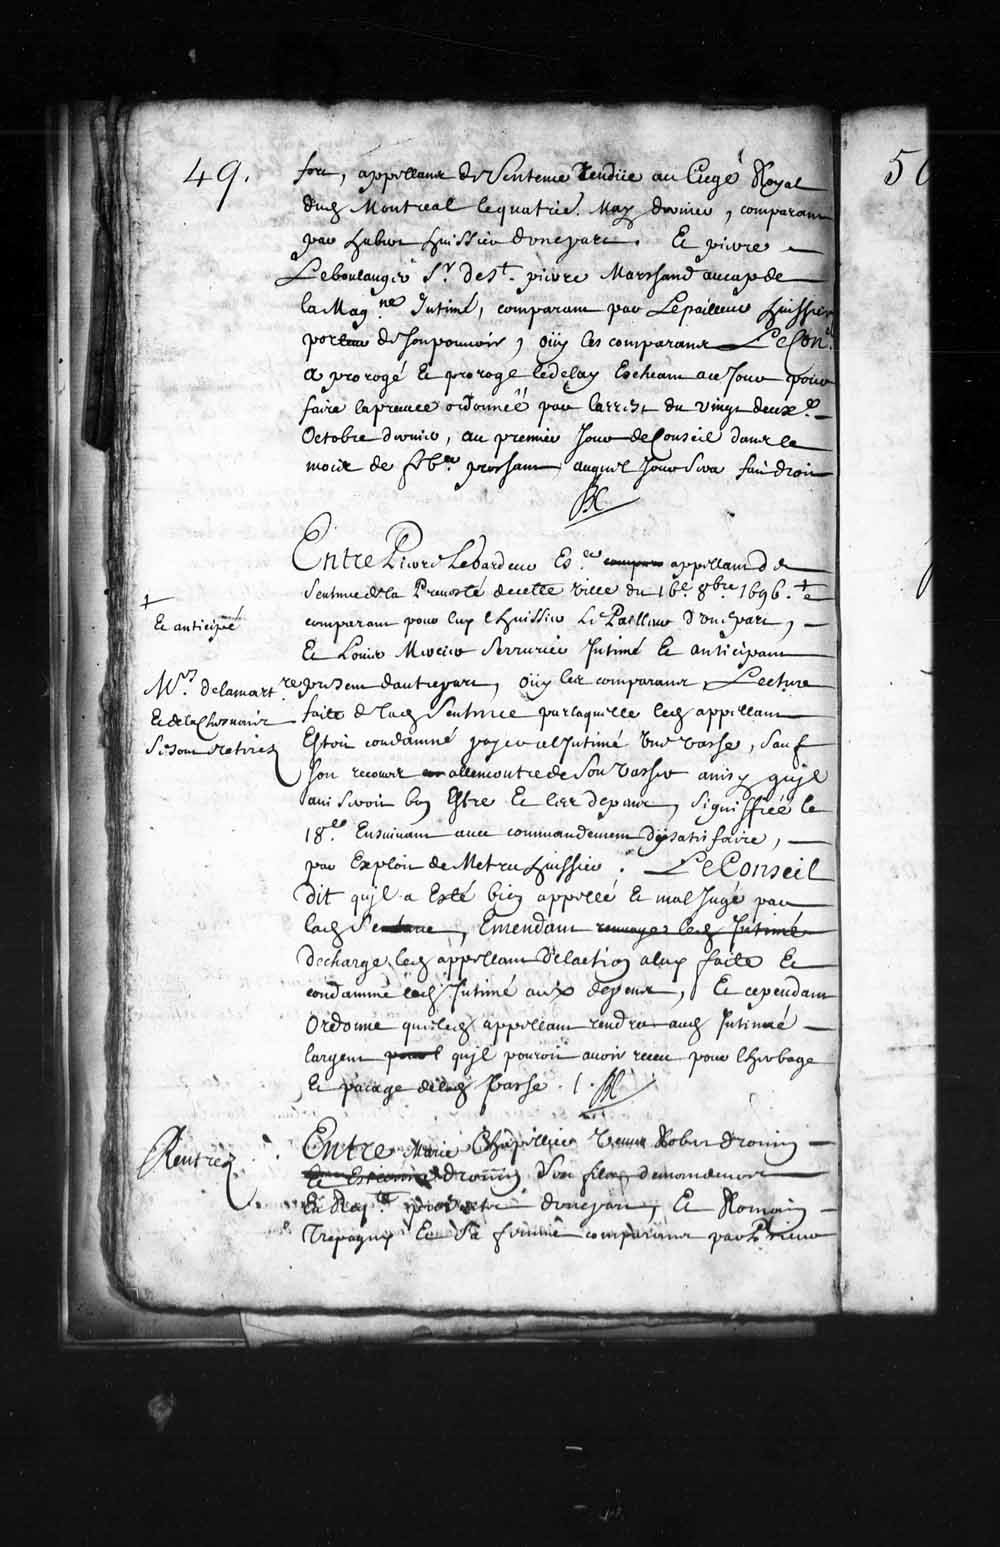 49.
fort, appellant de Sentence Rendüe au Siege Royal
dud Montreal le quatrie. May dernier, comparant
par hubert huissier d'une part. Et pierre
Leboulanger Sr. de St. pierre Marchand au cap de
la Mag.ne Intimé, comparant par Lepailleur huissier
porteur de son pouvoir, oüy les comparans Le Con.l
a prorogé Et proroge le delay Escheant au Jour pour
faire la preuve ordonneé par l'arrest du vingt deuxe.
Octobre dernier, au premier Jour de Conseil dans le
mois de prochain, auquel Jour Sera fait droit
Entre Pierre Lebardeur Es.er compar appellant de
Sentence de la Prevosté de cette ville du 16e. 8bre. 1696. +
comparant pour luy l'huissier Le Pailleur D'une part,
+
Et anticipé
Et Louis Mercier Serrurier Intimé Et anticipant
present d'autre part, oüy les comparans, Lecture
Mrs. delamartre
Et de la Chesnaie
Se sont Retirez
faite de lad Sentence par laquelle led appellant
Estoit condamné payer a l'Intimé Une Vasse, Sauf
Son recours allencontre de Son Vascher ainsy qu'jl
avisseroit bon Estre Et les depens, Signiffiée le
18.e Ensuivant avec commandement d'y satisfaire,
par Exploit de Metru huissier. Le Conseil
dit qu'jl a Esté bien appellé Et mal Jugé par
lad Sentence, Emendant renvoyer led Intimé
decharge led appellant de l'action a luy faite Et
condamné led Intimé aux depens, Et cependant
Ordonne que led appellant rendra aud Intimé
l'argent pour l qu'jl pouroit avoir receu pour l'herbage
Et pacage de lad Vasse. /.
Rentrez
Entre Marie Chapellier Veuve Robert drouin
Et Estienne drouin Son fils demandeur
En Req.te d'une part, Et Romain
Trepagny Et Sa femme comparans par
50